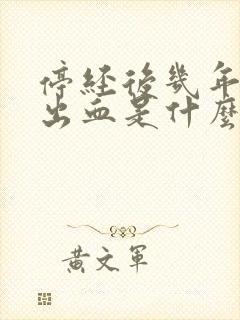 停經後幾年
出血是什麼
黃文軍